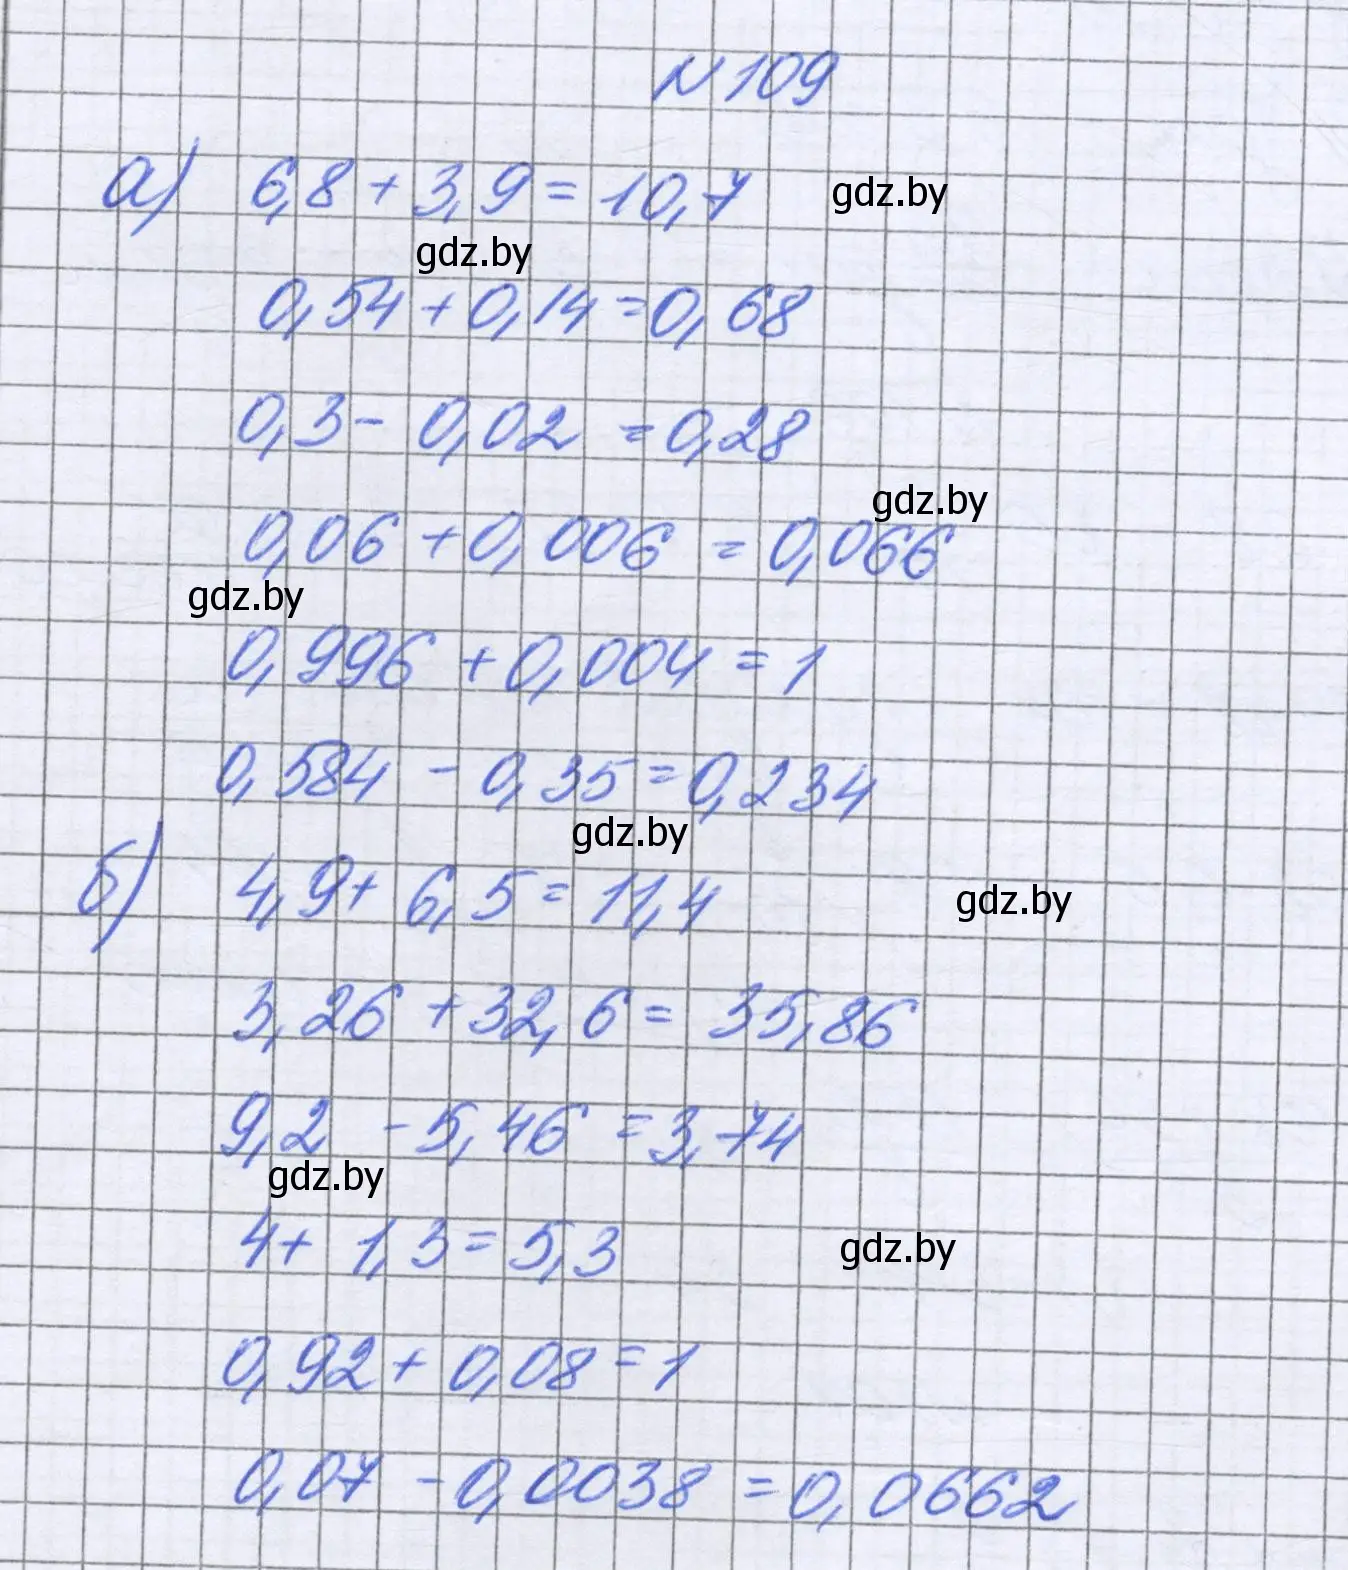 N 109
а) 6,8 + 3,9 = 10,7
gdz.by
gdz.by
0,54 + 0,14 = 0,68
0,3 - 0,02 = 0,28
gdz.by
0,06 + 0,006 = 0,066
gdz.by
0,996 + 0,004 = 1
0,584 - 0,35 = 0,234
gdz.by
б) 4,9 + 6,5 = 11,4
gdz.by
3,26 + 32,6 = 35,86
9,2 - 5,46 = 3,74
gdz.by
4 + 1,3 = 5,3
gdz.by
0,92 + 0,08 = 1
0,07 - 0,0038 = 0,0662